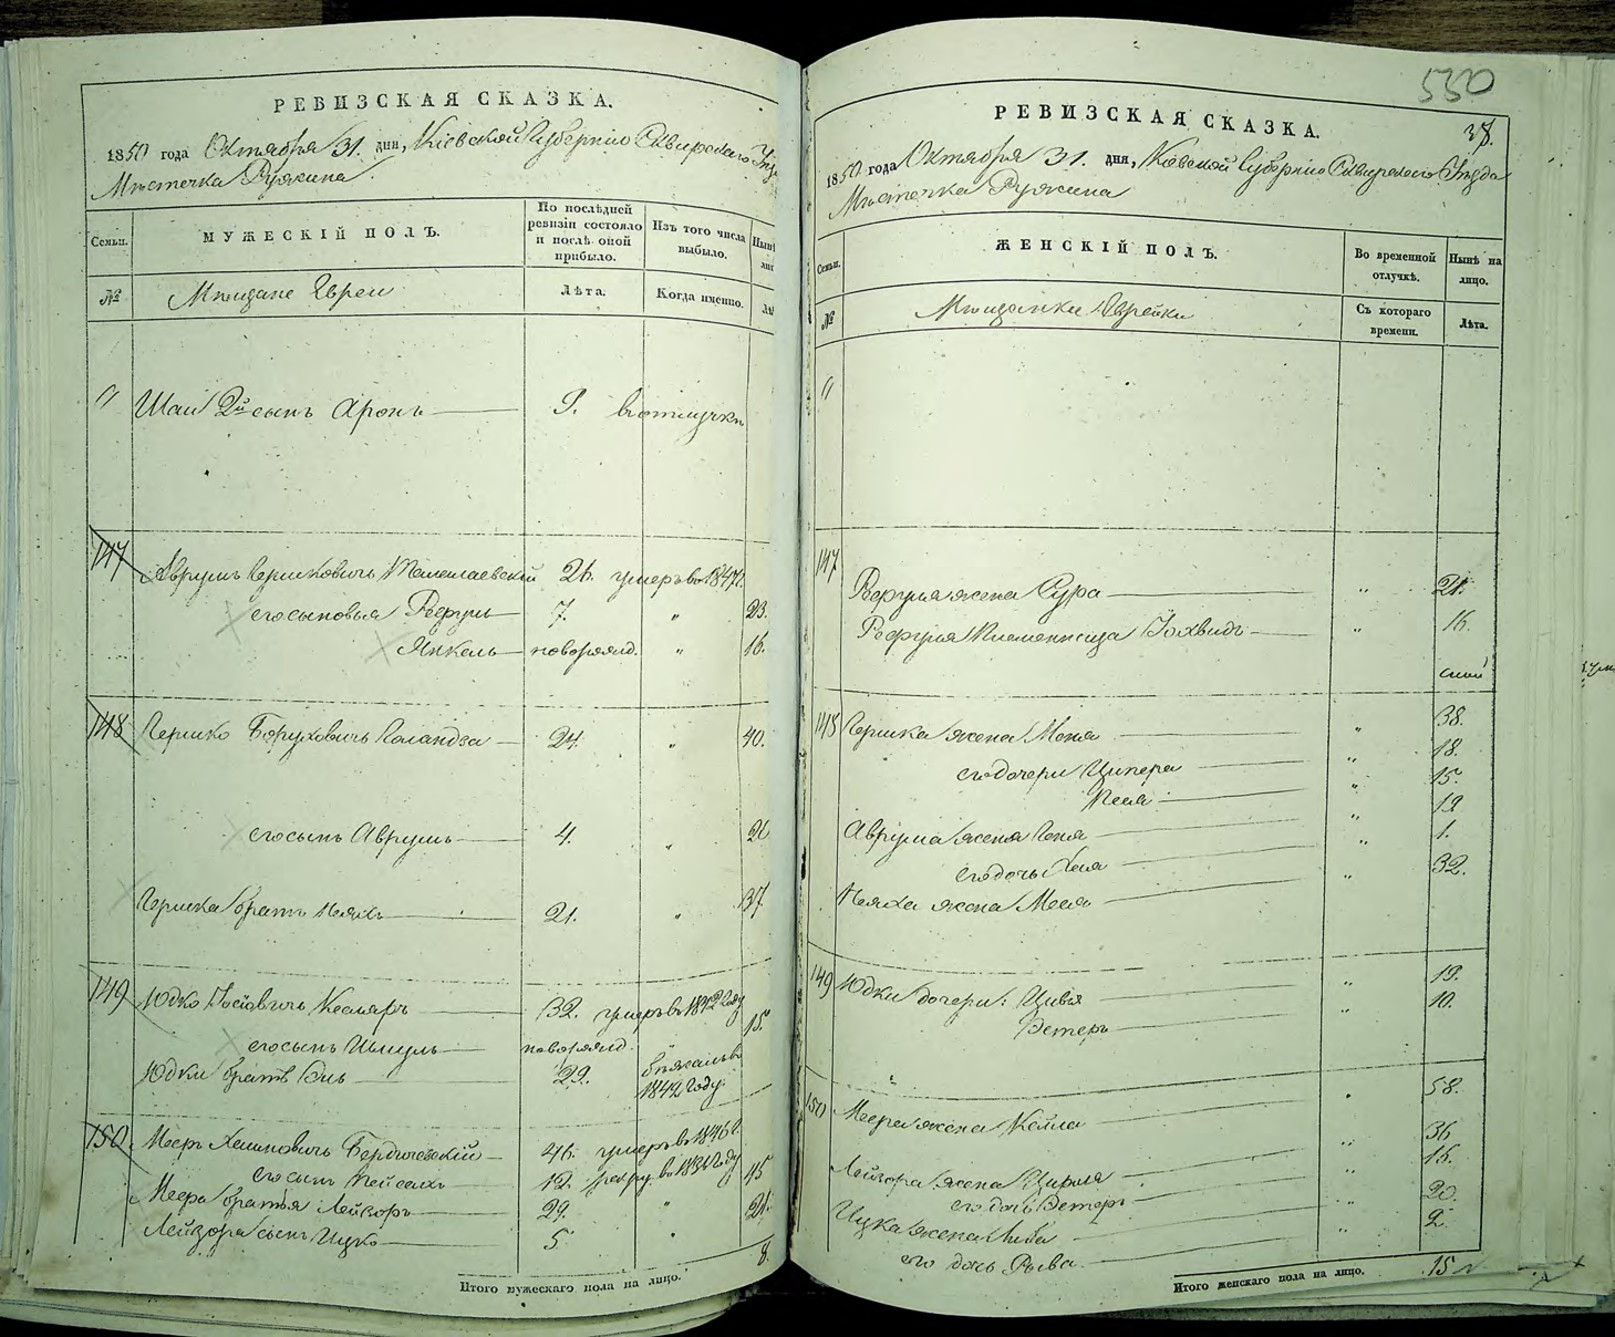 РЕВИЗСКАЯ СКАЗКА.
1850 года Октября 31. дня, Кіевской Губерніи Сквирскаго
Мѣстечка Ружина
Семьи.
МУЖЕСКІЙ ПОЛЪ.
По послѣдней ревизіи состояло и послѣ оной прибыло.
Изъ того числа выбыло.
№
Мѣщане Евреи
Лѣта.
Когда именно.
" Шаи 2й сынъ Аронъ 9. в отлучкѣ
147 Аврумъ Гершковичъ 26. умеръ в 1847 г.
его сыновья 7. " 23.
Янкель новорожд. " 16.
148 Гершко Боруховичъ 24. " 40.
его сынъ Аврумъ 4. " 20
Гершка братъ 21. " 37
149 Юдко 32. умеръ в 1842 году
его сынъ новорожд. 15.
Юдки братъ 29. бѣжалъ в 1842 году
150. Мееръ Хаимовичъ Бердичевскій 46. умеръ в 1846 г.
его сынъ Пейсахъ 12. рекру. в 1834 году
Меера братья Лейзоръ 29. " 45
Лейзора сынъ Ицко 5. " 21.
8.
Итого мужескаго пола на лицо.
530
37.
РЕВИЗСКАЯ СКАЗКА.
1850 года Октября 31. дня, Кіевской Губерніи Сквирскаго Уѣзда
Мѣстечка Ружина
Семьи.
ЖЕНСКІЙ ПОЛЪ.
Во временной отлучкѣ.
Нынѣ на лицо.
№
Мѣщанки Еврейки
Съ котораго времени.
Лѣта.
"
147 жена Сура " 21.
племенница " 16.
148 Гершка жена " 38.
его дочери Ципера " 18.
Песя " 15.
Аврума жена " 19
его дочь Хая " 1.
жена " 32.
149 Юдки дочери: Цивья " 19.
Эстеръ " 10.
150 Меера жена Кейла " 58.
Лейзора жена " 36
его дочь Эстеръ " 16.
Ицка жена Либа " 20.
его дочь Рыва. " 2.
15
Итого женскаго пола на лицо.